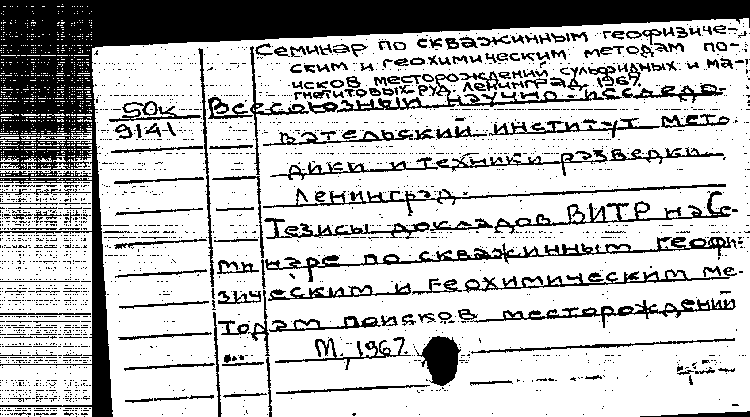 Семинар по скважинным геофизиче-
ским и геохимическим методам по-
исков месторождений сульфидных и ма-
гнетитовых руд, Ленинград, 1967.
50к Всесоюзный научно-исследо-
9141 вательский институт мето-
дики и техники разведки.
Ленинград.
Тезисы докладов ВИТР на Се-
минаре по скважинным геофи-
зическим и геохимическим ме-
тодам поисков месторождений
... М., 1967